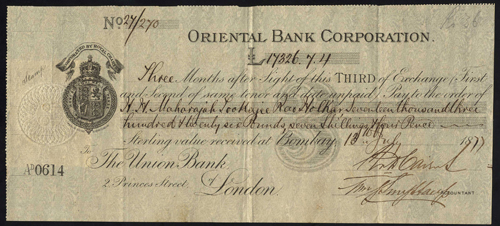 No 27/270
ORIENTAL BANK CORPORATION.
£ 17326.7.4
Three Months after Sight of this THIRD of Exchange (First
and Second of same tenor and date unpaid) Pay to the order of
H. H. Maharajah Tookajee Rao Holkar Seventeen thousand three
hundred & twenty six Pounds seven shillings & four Pence
Sterling value received at Bombay 16th July 1877
To
The Union Bank
2 Princes Street
of London
A/D 0614
ACCOUNTANT